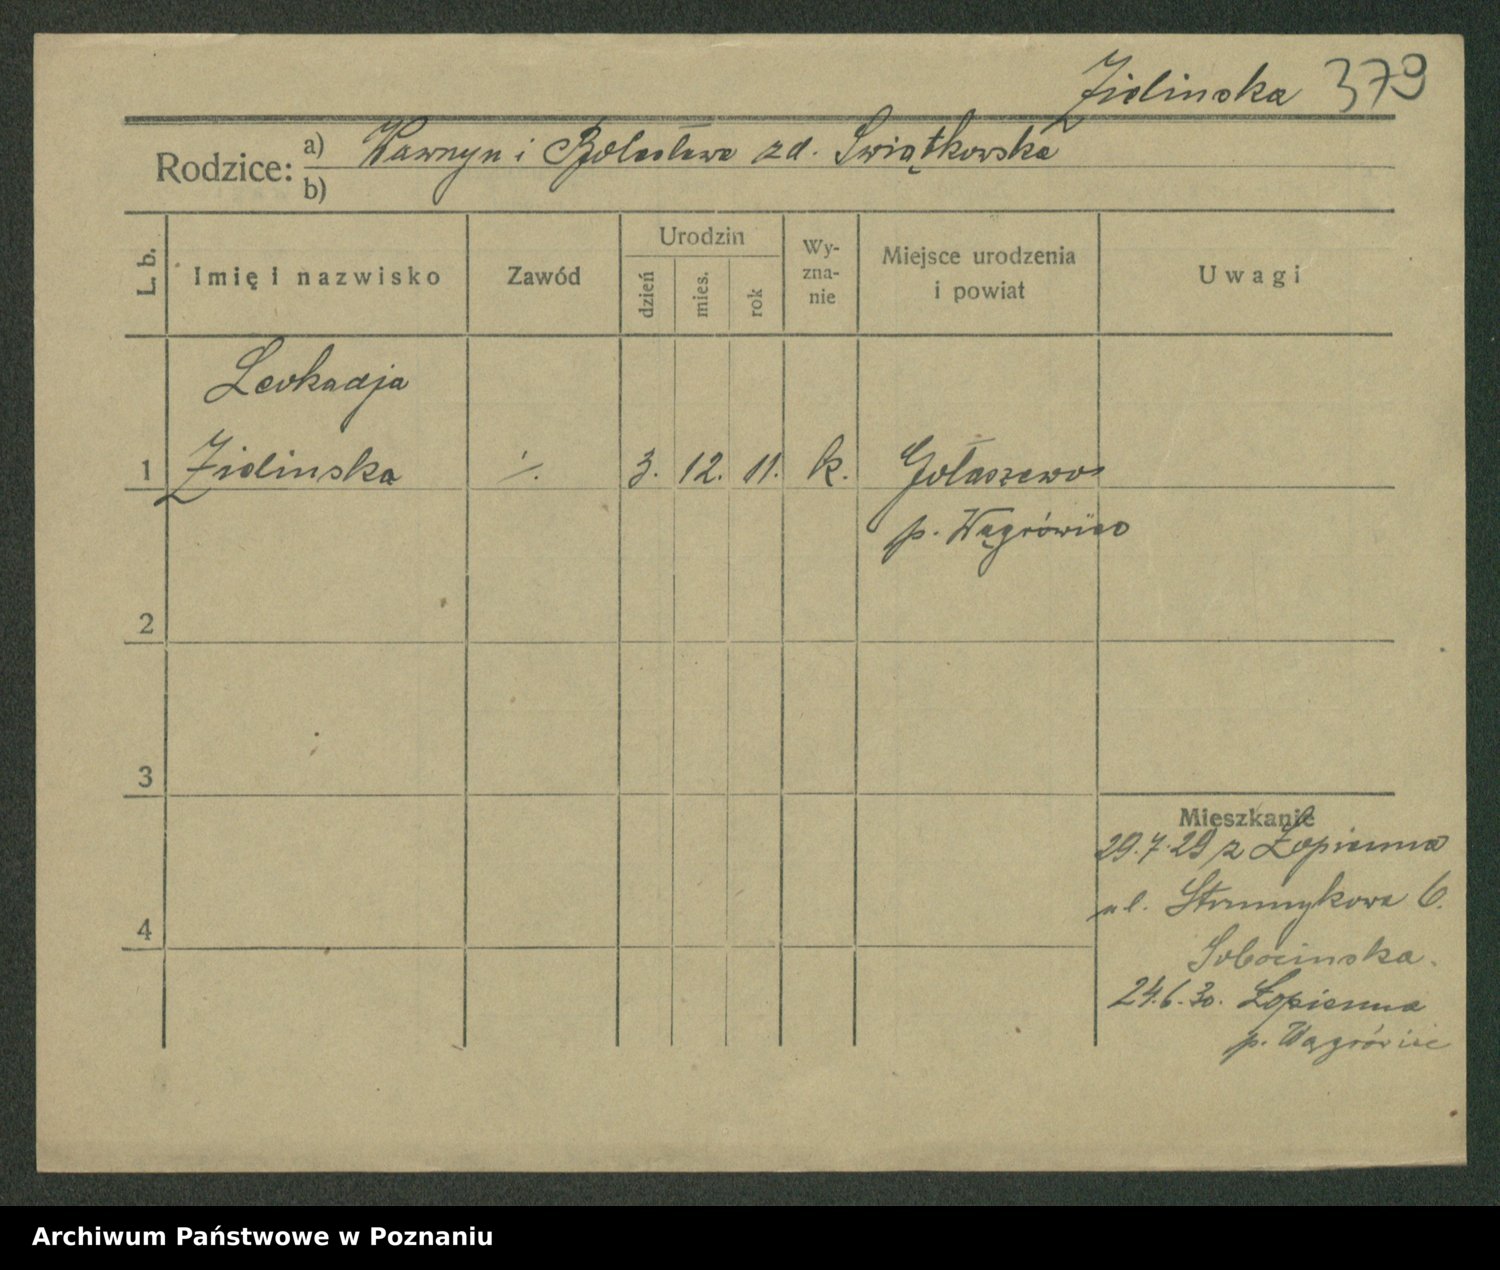 Zielinska 379
Rodzice: a) Wawrzyn i Bolesława zd. Swiątkowska
b)
L. b.
Imię i nazwisko
Zawód
Urodzin
dzień
mies.
rok
Wy-
zna-
nie
Miejsce urodzenia
i powiat
Uwagi
Leokadja
1 Zielinska ./. 3. 12. 11. k. Gołaszewo
p. Wągrówiec
2
3
Mieszkanie
29.7.29 z Łopienna
ul. Strumykowa 6.
4
Sobocinska.
24.6.30. Łopienna
p. Wągrówiec
Archiwum Państwowe w Poznaniu